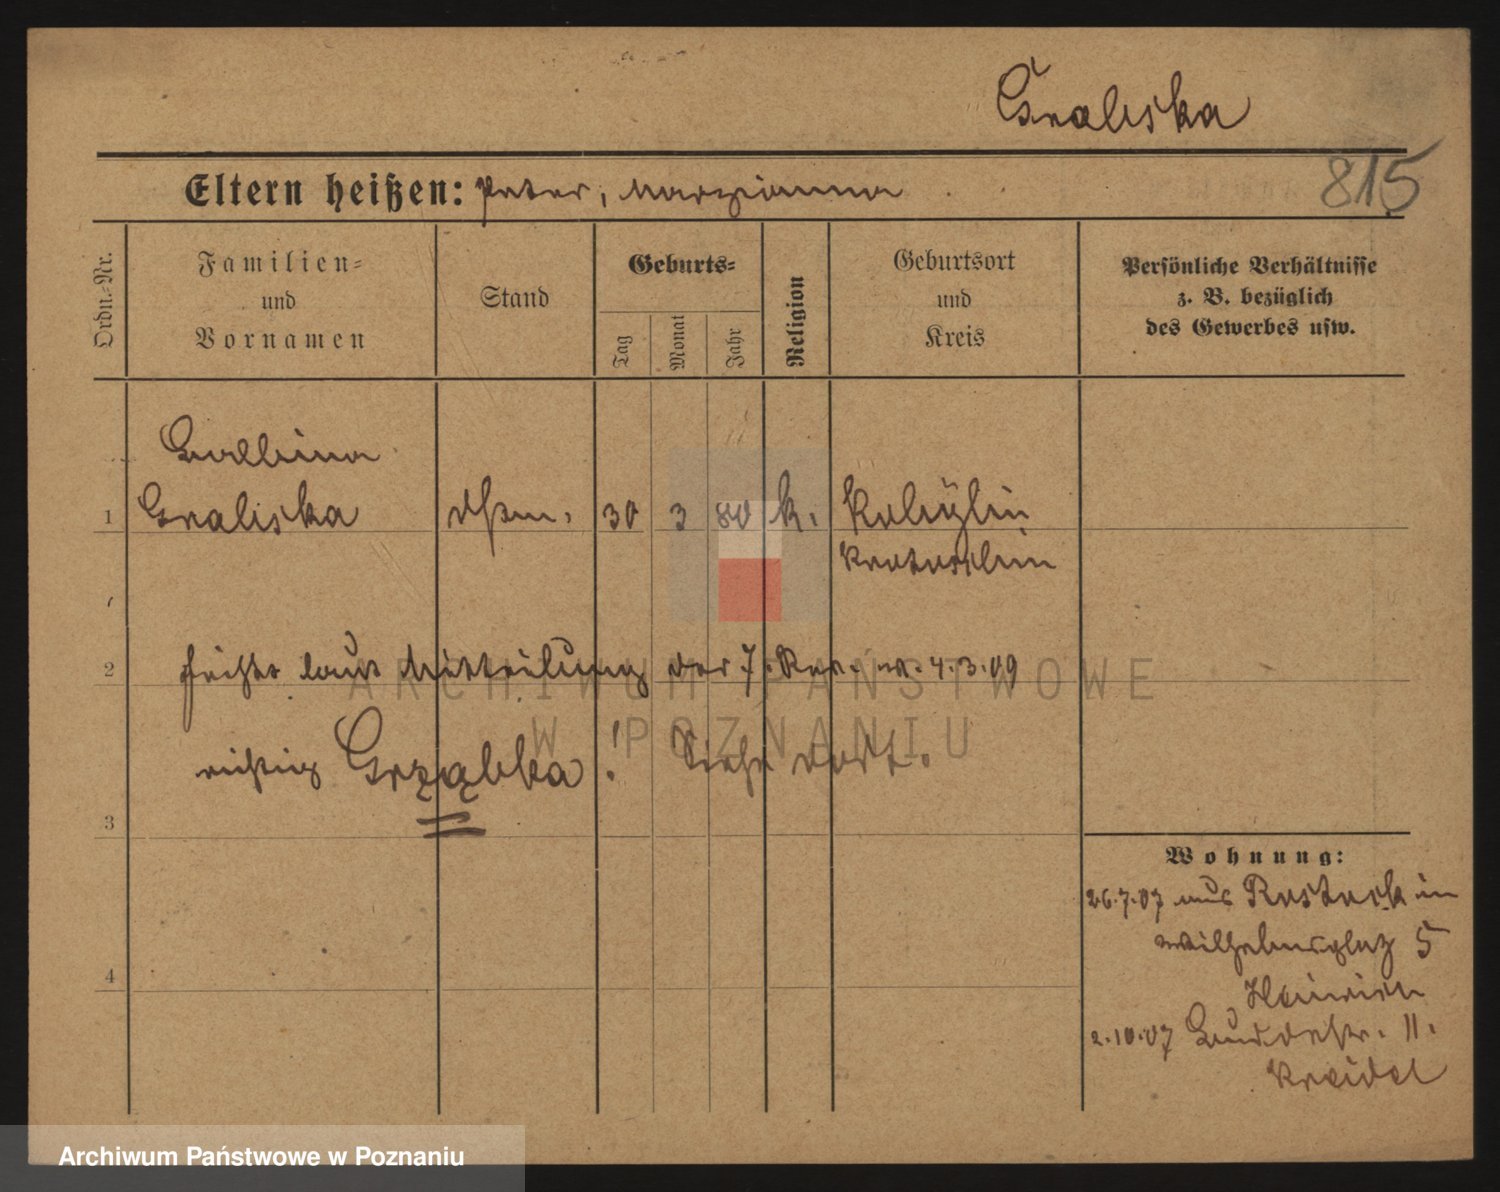 Graliska
815
Eltern heißen: Peter, Marzianna
Ordn.-Nr.
Familien-
und
Vornamen
Stand
Geburts-
Tag
Monat
Jahr
Religion
Geburtsort
und
Kreis
Persönliche Verhältnisse
z. B. bezüglich
des Gewerbes usw.
Balbina
1 Graliska 30 3 80 k. Kobylin
Krotoschin
2 heißt laut Mitteilung der 7. Rev. 4.3.09
richtig Grząbka! Siehe dort.
3
4
Wohnung:
26.7.07 aus Rostock in
Wilhelmsplatz 5
Heinrich
2.10.07 11.
Kreidel
ARCHIWUM PAŃSTWOWE
W POZNANIU
Archiwum Państwowe w Poznaniu